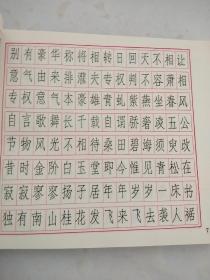 别有豪华称将相转日回天不相让
意气由来排灌夫专权判不容萧相
专权意气本豪雄青虬紫燕坐春风
自言歌舞长千载自谓骄奢凌五公
节物风光不相待桑田碧海须臾改
昔时金阶白玉堂即今惟见青松在
寂寂寥寥扬子居年年岁岁一床书
独有南山桂花发飞来飞去袭人裾
7